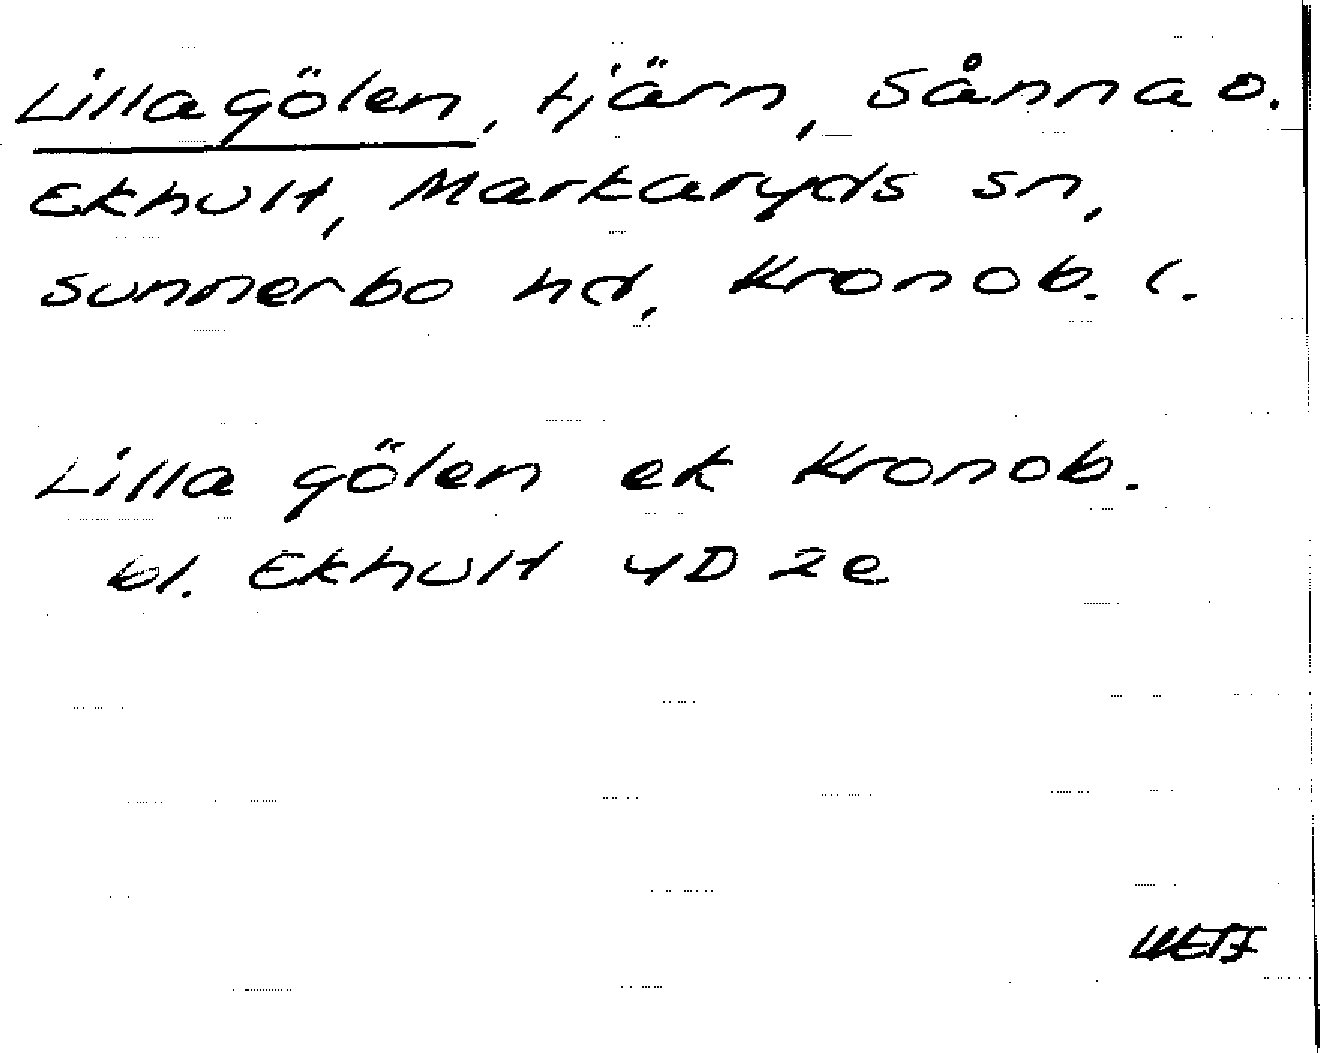 Lillagölen, tjärn, Sånna o.
Ekhult, Markaryds sn,
Sunnerbo hd, Kronob. l.
Lilla gölen ek Kronob.
bl. Ekhult 4D 2e